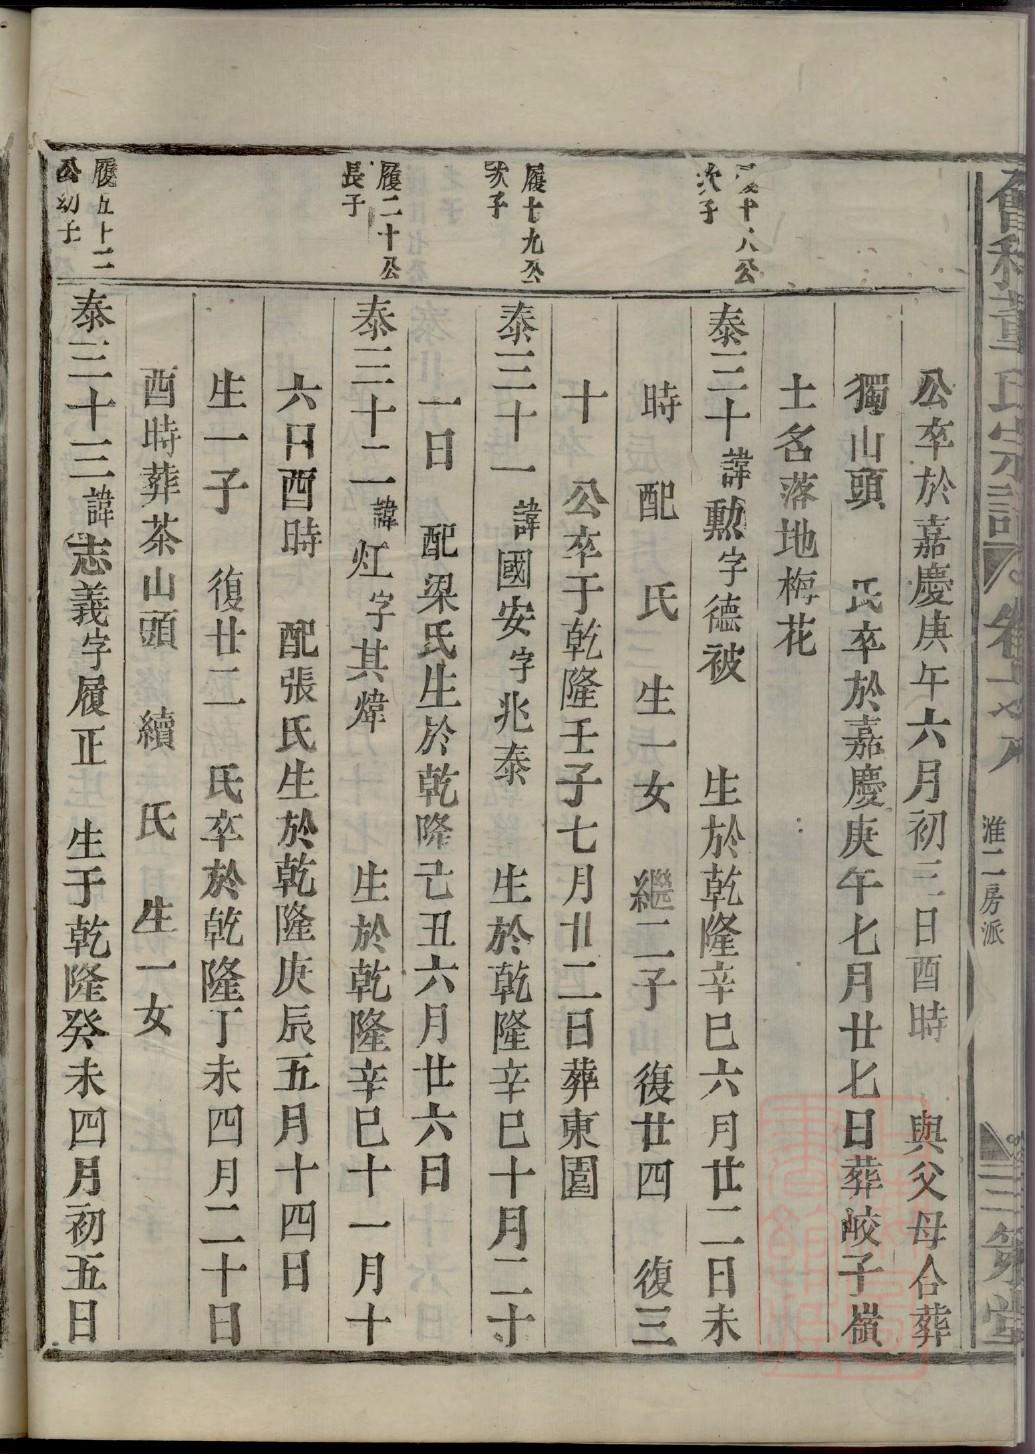 會稽董氏宗譜 卷之八 淮二房派 三策堂
公卒於嘉慶庚午六月初三日酉時 與父母合葬
獨山頭 氏卒於嘉慶庚午七月廿七日葬峧子嶺
土名落地梅花
履十八公
次子
泰三十諱勲字德被 生於乾隆辛巳六月廿二日未
時 配 氏 生一女 繼二子 復廿四 復三
十 公卒于乾隆壬子七月廿二日葬東園
履十九公
次子
泰三十一諱國安字兆泰 生於乾隆辛巳十月二十
一日 配梁氏生於乾隆己丑六月廿六日
履二十公
長子
泰三十二諱灴字其煒 生於乾隆辛巳十一月十
六日酉時 配張氏生於乾隆庚辰五月十四日
生一子 復廿二 氏卒於乾隆丁未四月二十日
酉時葬茶山頭 續 氏 生一女
履五十二
公幼子
泰三十三諱志義字履正 生于乾隆癸未四月初五日